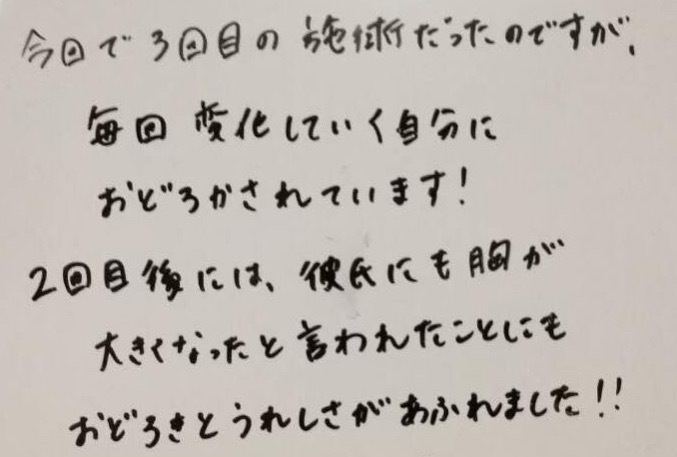 今回で3回目の施術だったのですが、
毎回変化していく自分に
おどろかされています!
2回目後には、彼氏にも胸が
大きくなったと言われたことにも
おどろきとうれしさがあふれました!!